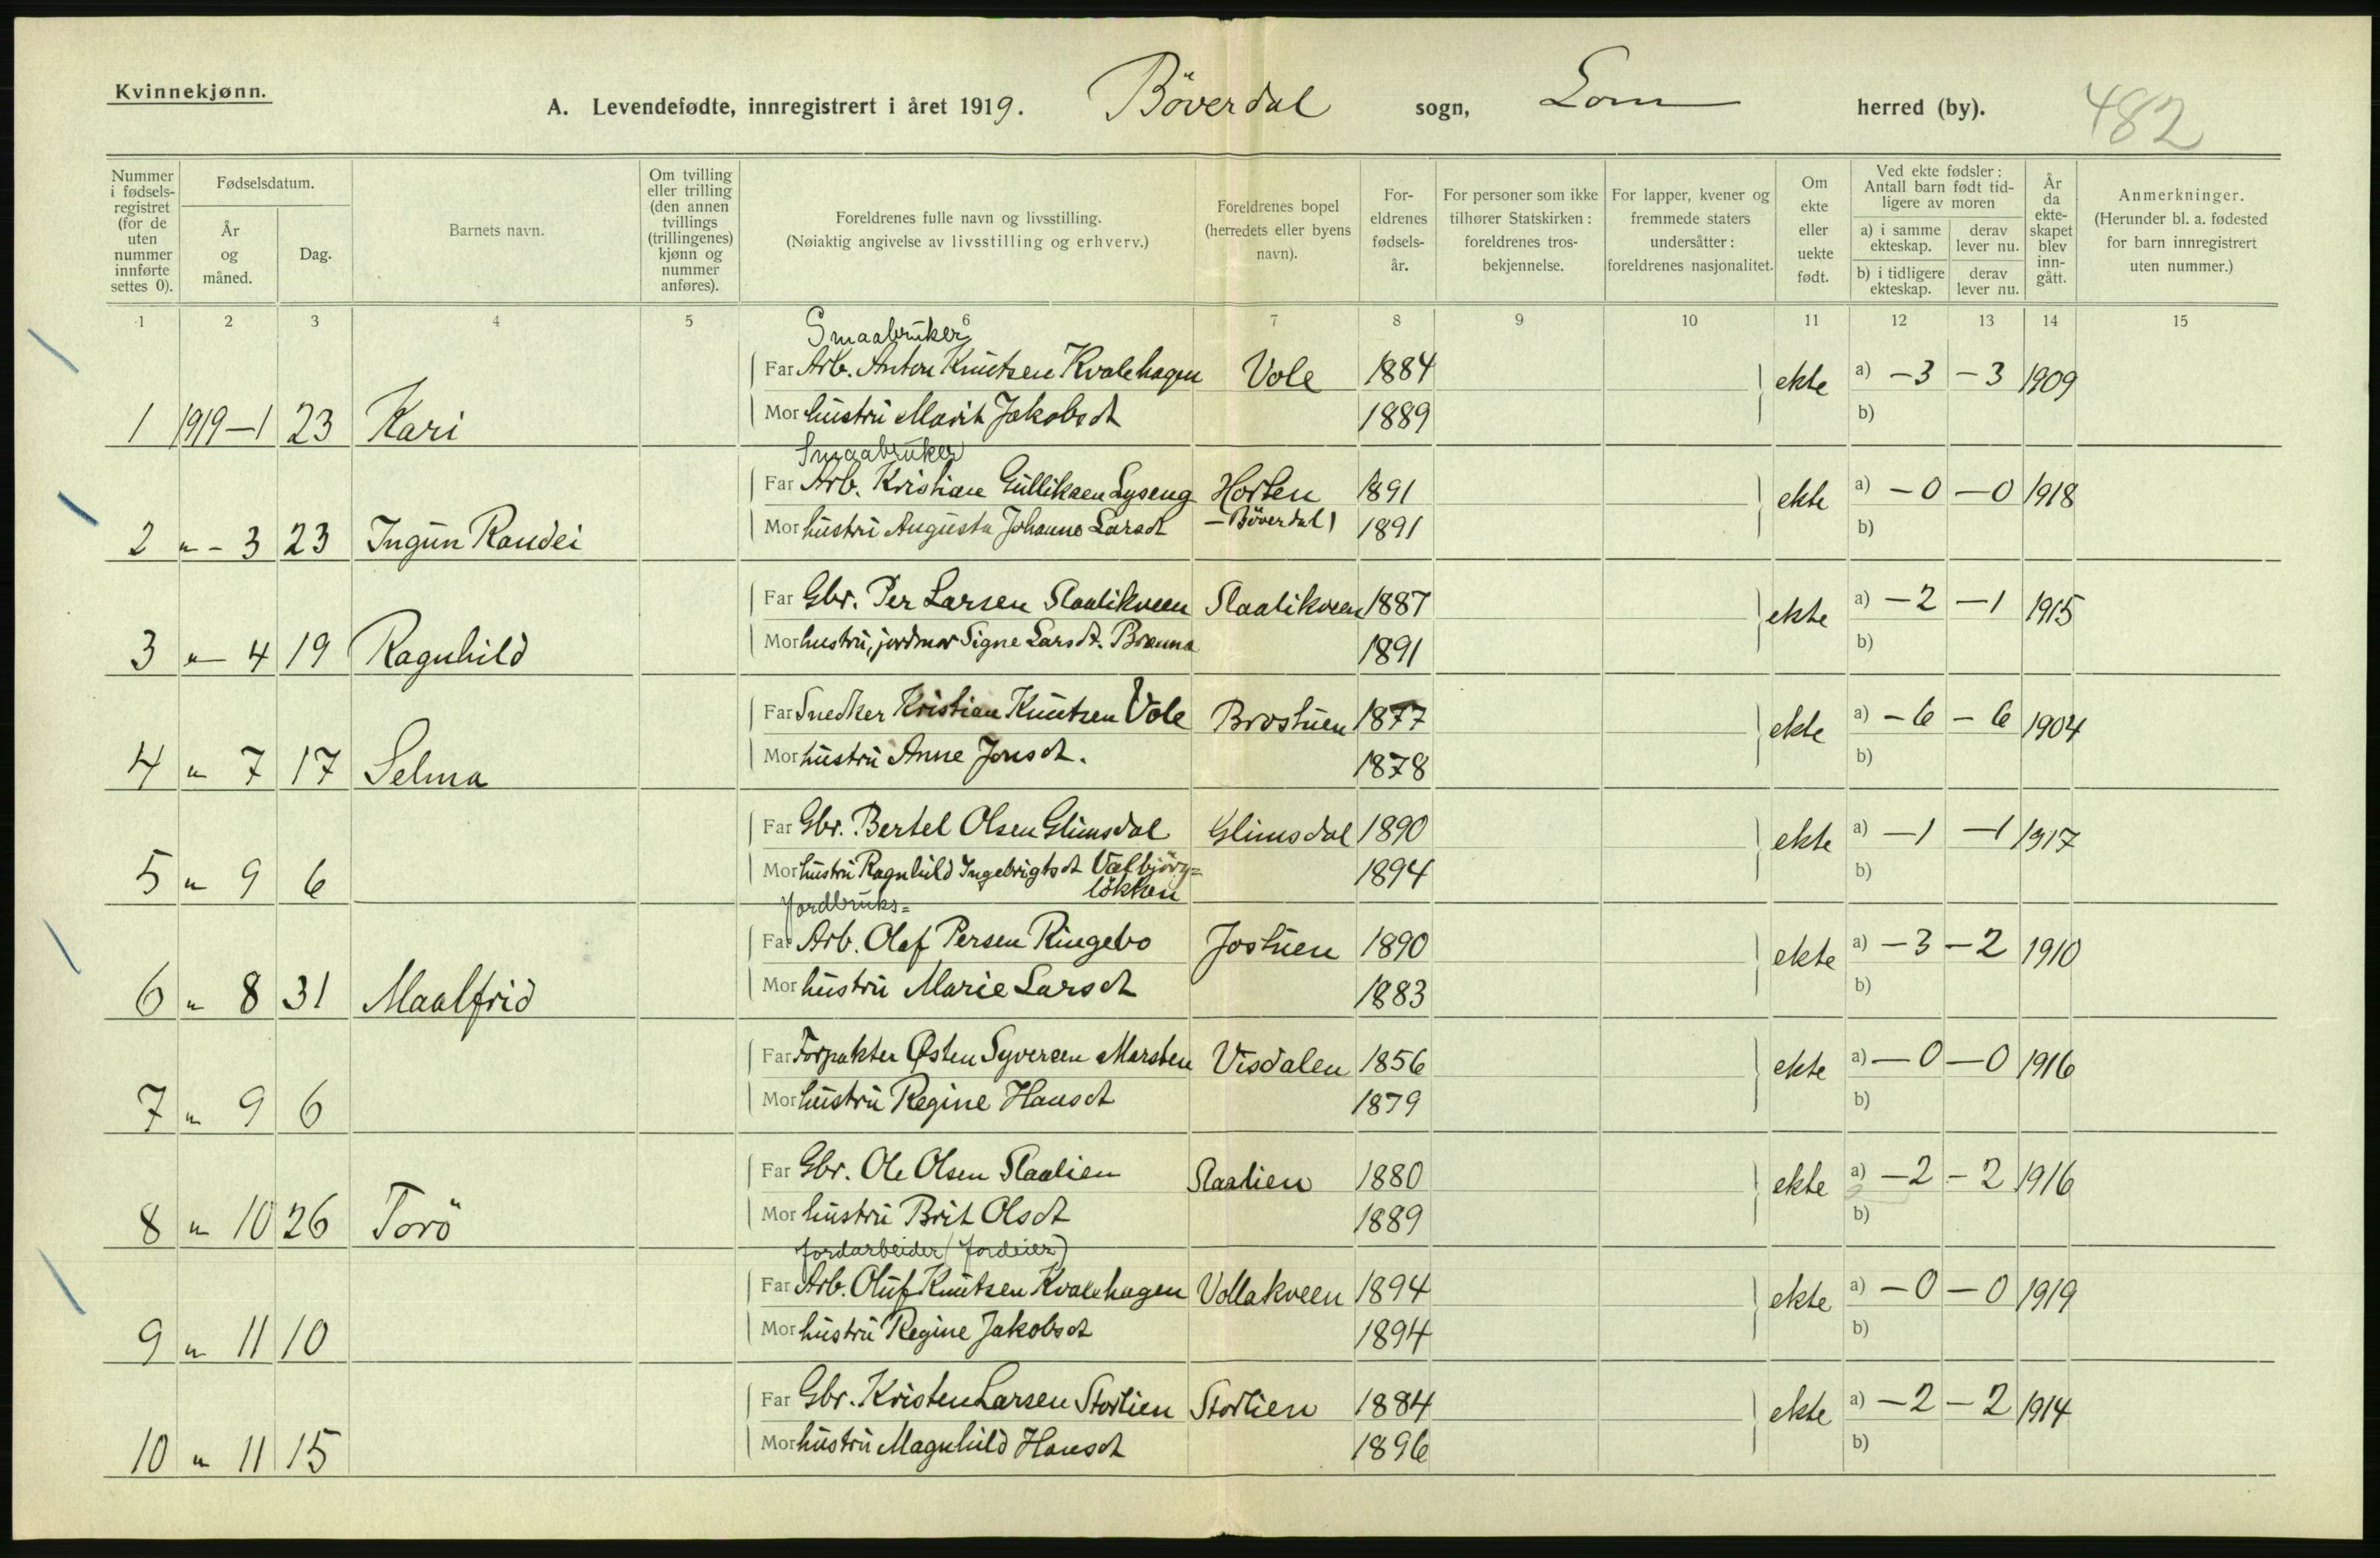 Kvinnekjønn.
A. Levendefødte, innregistrert i året 1919. Böverdal sogn, Lom herred (by). 482
Nummer i fødsels-registret (for de uten nummer innførte settes 0).
Fødselsdatum.
År og måned.
Dag.
Barnets navn.
Om tvilling eller trilling (den annen tvillings (trillingenes) kjønn og nummer anføres).
Foreldrenes fulle navn og livsstilling.
(Nøiaktig angivelse av livsstilling og erhverv.)
Foreldrenes bopel (herredets eller byens navn).
For-eldrenes fødsels-år.
For personer som ikke tilhører Statskirken: foreldrenes tros-bekjennelse.
For lapper, kvener og fremmede staters undersåtter: foreldrenes nasjonalitet.
Om ekte eller uekte født.
Ved ekte fødsler: Antall barn født tid-ligere av moren
a) i samme ekteskap. derav lever nu.
b) i tidligere ekteskap. derav lever nu.
År da ekte-skapet blev inn-gått.
Anmerkninger.
(Herunder bl. a. fødested for barn innregistrert uten nummer.)
1 2 3 4 5 6 7 8 9 10 11 12 13 14 15
Smaabruker
Far Arb. Anton Knutsen Kvalehagen Vole 1884 ekte a) -3 -3 1909
1 1919-1 23 Kari Mor hustru Marit Jakobsdt 1889 b)
Smaabruker
Far Arb. Kristian Gulliksen Lyseng Horten 1891 ekte a) -0 -0 1918
2 " - 3 23 Ingun Raudei Mor hustru Augusta Johanne Larsdt - Böverdal) 1891 b)
Far Gbr. Per Larsen Slaalikveen Slaalikveen 1887 ekte a) -2 -1 1915
3 " 4 19 Ragnhild Mor hustru, jordmor Signe Larsdt. Brenna 1891 b)
Far Snedker Kristian Knutsen Vole Brostuen 1877 ekte a) -6 -6 1904
4 " 7 17 Selma Mor hustru Anne Jonsdt. 1878 b)
Far Gbr. Bertel Olsen Glimsdal Glimsdal 1890 ekte a) -1 -1 1917
5 " 9 6 Mor hustru Ragnhild Ingebrigtsdt Valbjörg= 1894 b)
lökken
Jordbruks=
Far Arb. Olaf Persen Ringebo Jostuen 1890 ekte a) -3 -2 1910
6 " 8 31 Maalfrid Mor hustru Marie Larsdt 1883 b)
Far Forpakter Østen Syversen Marsten Visdalen 1856 ekte a) -0 -0 1916
7 " 9 6 Mor hustru Regine Hansdt 1879 b)
Far Gbr. Ole Olsen Slaalien Slaalien 1880 ekte a) -2 -2 1916
8 " 10 26 Torö Mor hustru Brit Olsdt 1889 b)
Jordarbeider (Jordeier)
Far Arb. Oluf Knutsen Kvalehagen Vollakveen 1894 ekte a) -0 -0 1919
9 " 11 10 Mor hustru Regine Jakobsdt 1894 b)
Far Gbr. Kristen Larsen Storlien Storlien 1884 ekte a) -2 -2 1914
10 " 11 15 Mor hustru Magnhild Hansdt 1896 b)